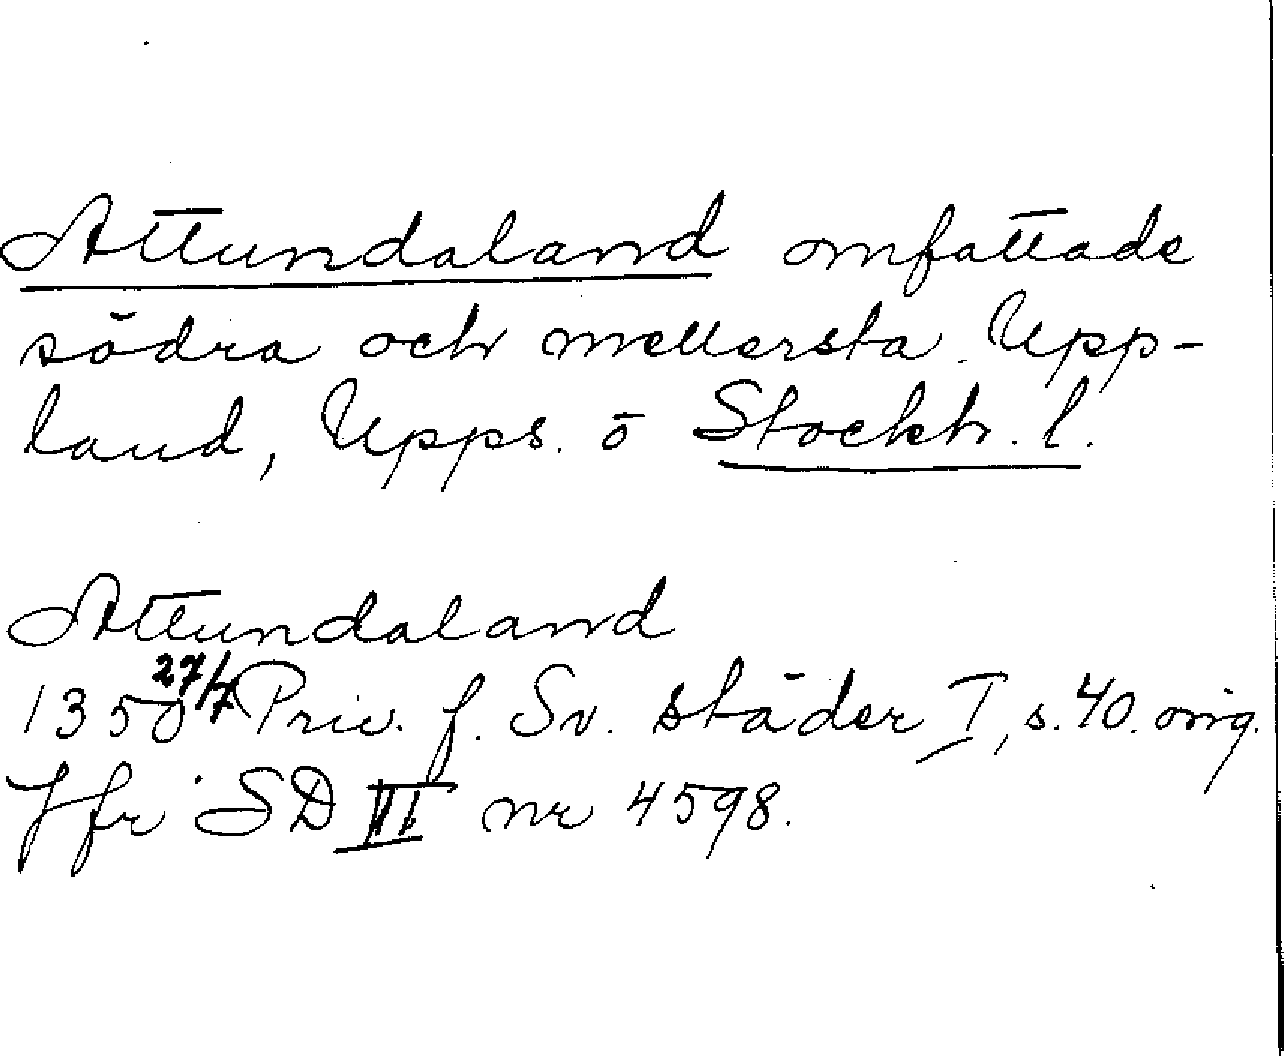 Attundaland omfattade
södra och mellersta Upp-
land, Upps. o Stockh. l.
Attundaland
1350 27/7 Priv. f. Sv. städer I, s. 40. orig.
Jfr SD VI nr 4598.